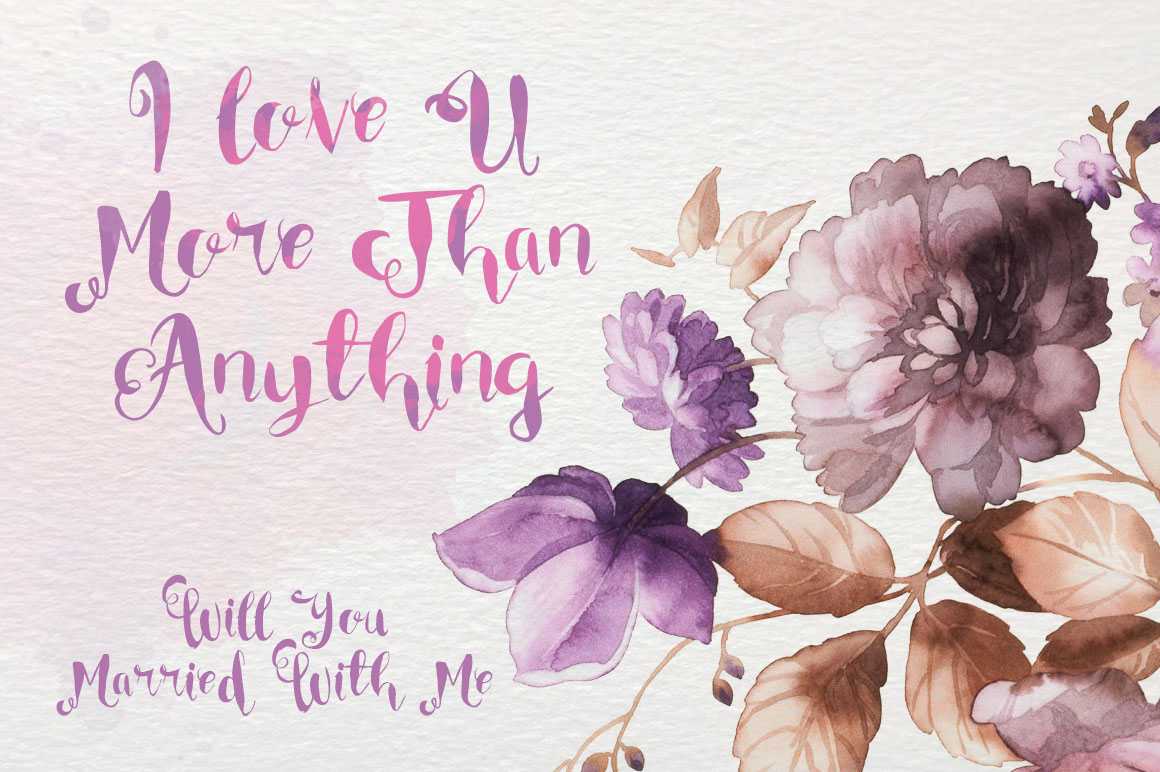 I love U
More Than
Anything
Will You
Married With Me